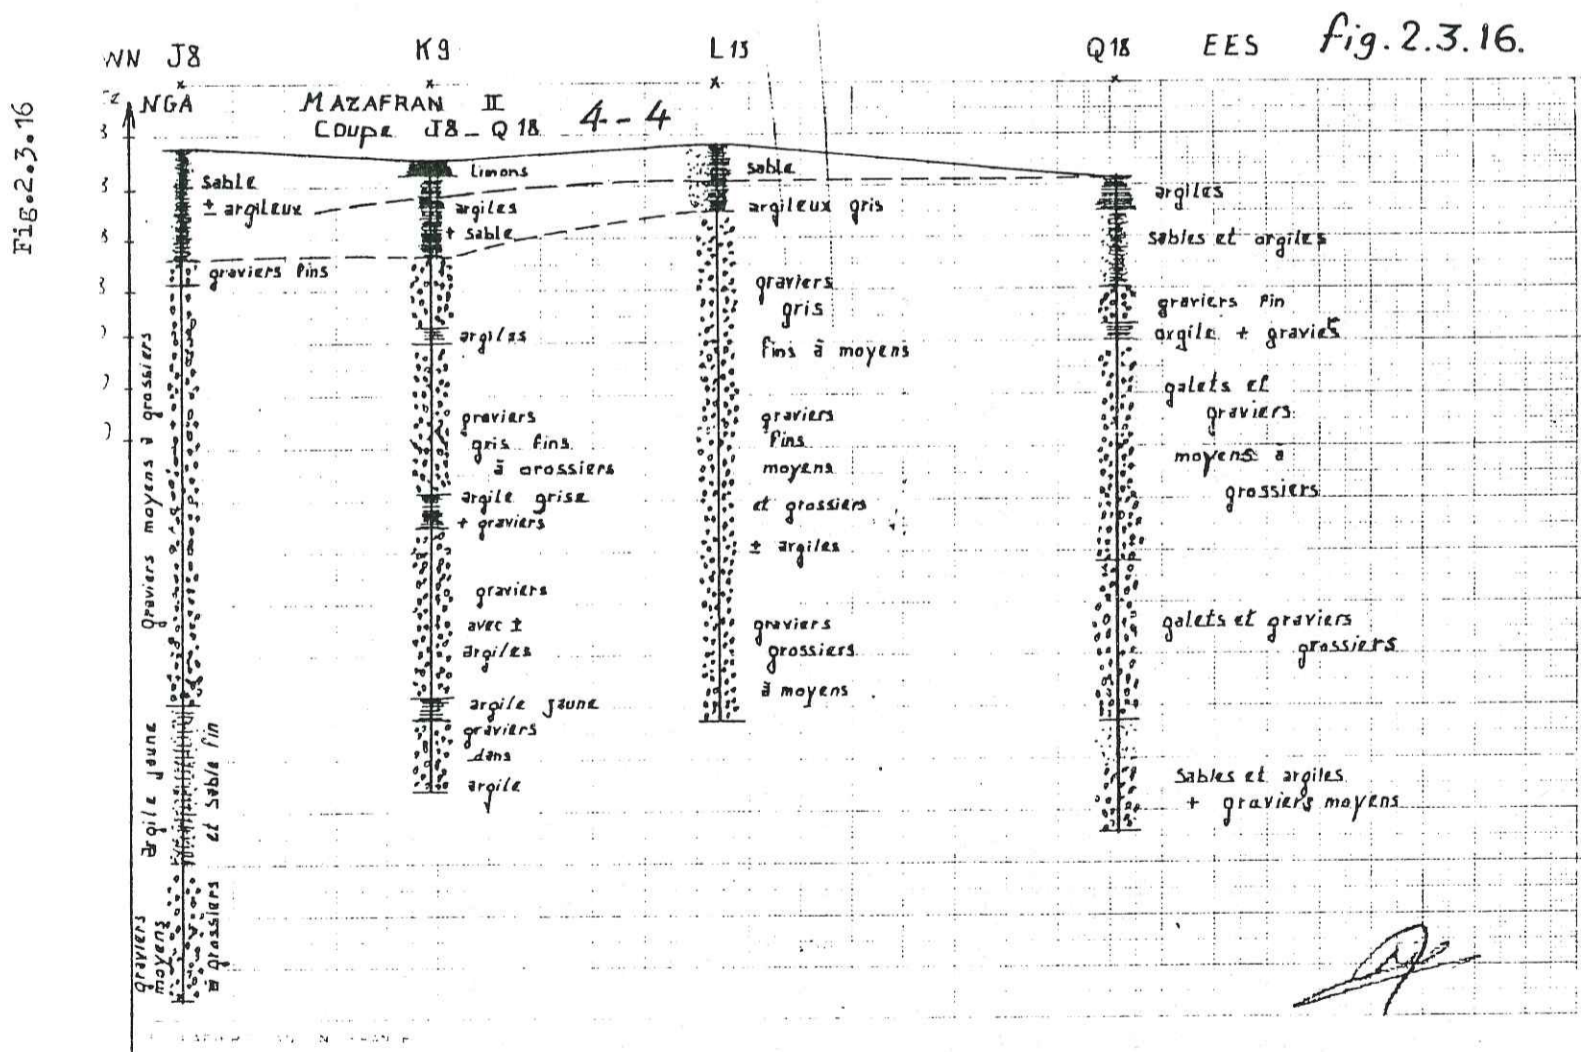 Fig.2.3.16
fig. 2.3.16.
WN J8 K9 L13 Q18 EES
NGA
MAZAFRAN II
Coupe J8_Q18 4--4
sable
± argileux
graviers fins
graviers moyens à grossiers
argile jaune
et sable fin
graviers
moyens
à grossiers
limons
argiles
+ sable
argiles
graviers
gris fins
à grossiers
argile grise
+ graviers
graviers
avec ±
argiles
argile jaune
graviers
dans
argile
sable
argileux gris
graviers
gris
fins à moyens
graviers
fins
moyens
et grossiers
± argiles
graviers
grossiers
à moyens
argiles
sables et argiles
graviers fin
argile + gravier
galets et
graviers
moyens à
grossiers
galets et graviers
grossiers
Sables et argiles
+ graviers moyens